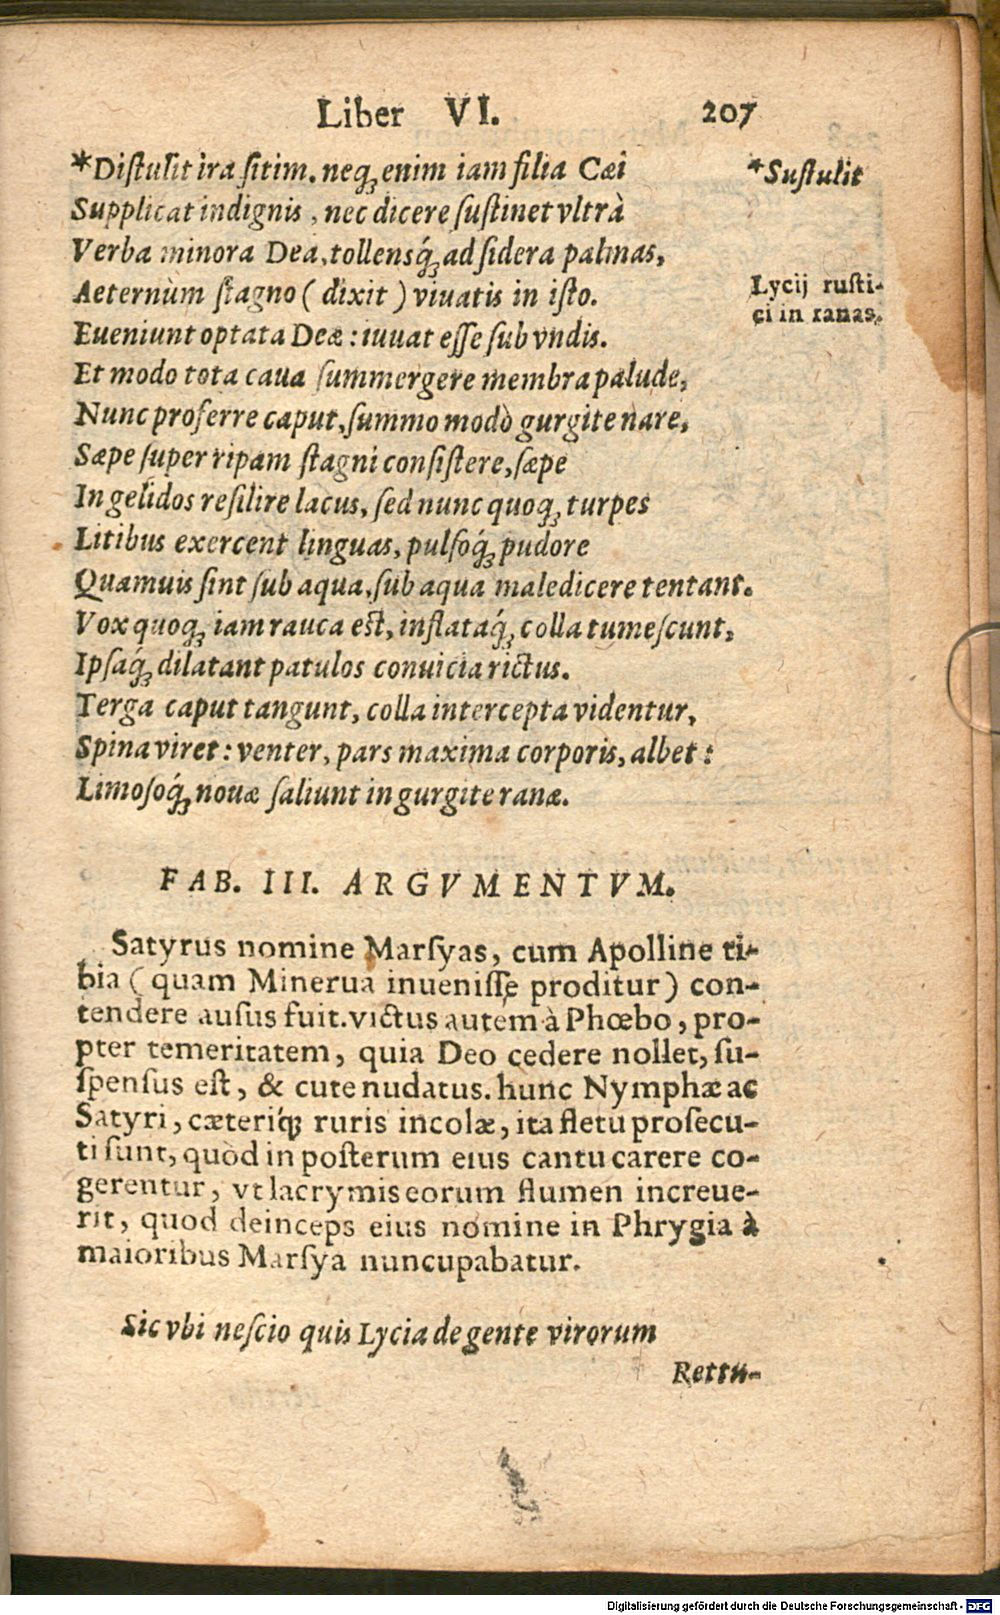 Liber VI. 207
*Distulit ira sitim. neq; enim iam filia Cæi
*Sustulit
Supplicat indignis, nec dicere sustinet vltrà
Verba minora Dea, tollensq́; ad sidera palmas,
Aeternùm stagno (dixit) viuatis in isto.
Lycij rusti-
ci in ranas.
Eueniunt optata Deæ: iuuat esse sub vndis.
Et modo tota caua summergere membra palude,
Nunc proferre caput, summo modò gurgite nare,
Sæpe super ripam stagni consistere, sæpe
In gelidos resilire lacus, sed nunc quoq; turpes
Litibus exercent linguas, pulsoq́; pudore
Quamuis sint sub aqua, sub aqua maledicere tentant.
Vox quoq; iam rauca est, inflataq́; colla tumescunt,
Ipsaq́; dilatant patulos conuicia rictus.
Terga caput tangunt, colla intercepta videntur,
Spina viret: venter, pars maxima corporis, albet:
Limosoq́; nouæ saliunt in gurgite ranæ.
FAB. III. ARGVMENTVM.
Satyrus nomine Marsyas, cum Apolline ti-
bia (quam Minerua inuenisse proditur) con-
tendere ausus fuit. victus autem à Phœbo, pro-
pter temeritatem, quia Deo cedere nollet, su-
spensus est, & cute nudatus. hunc Nymphæ ac
Satyri, cæteriq́; ruris incolæ, ita fletu prosecu-
ti sunt, quòd in posterum eius cantu carere co-
gerentur, vt lacrymis eorum flumen increue-
rit, quod deinceps eius nomine in Phrygia à
maioribus Marsya nuncupabatur.
Sic vbi nescio quis Lycia de gente virorum
Rettu-
Digitalisierung gefördert durch die Deutsche Forschungsgemeinschaft - DFG